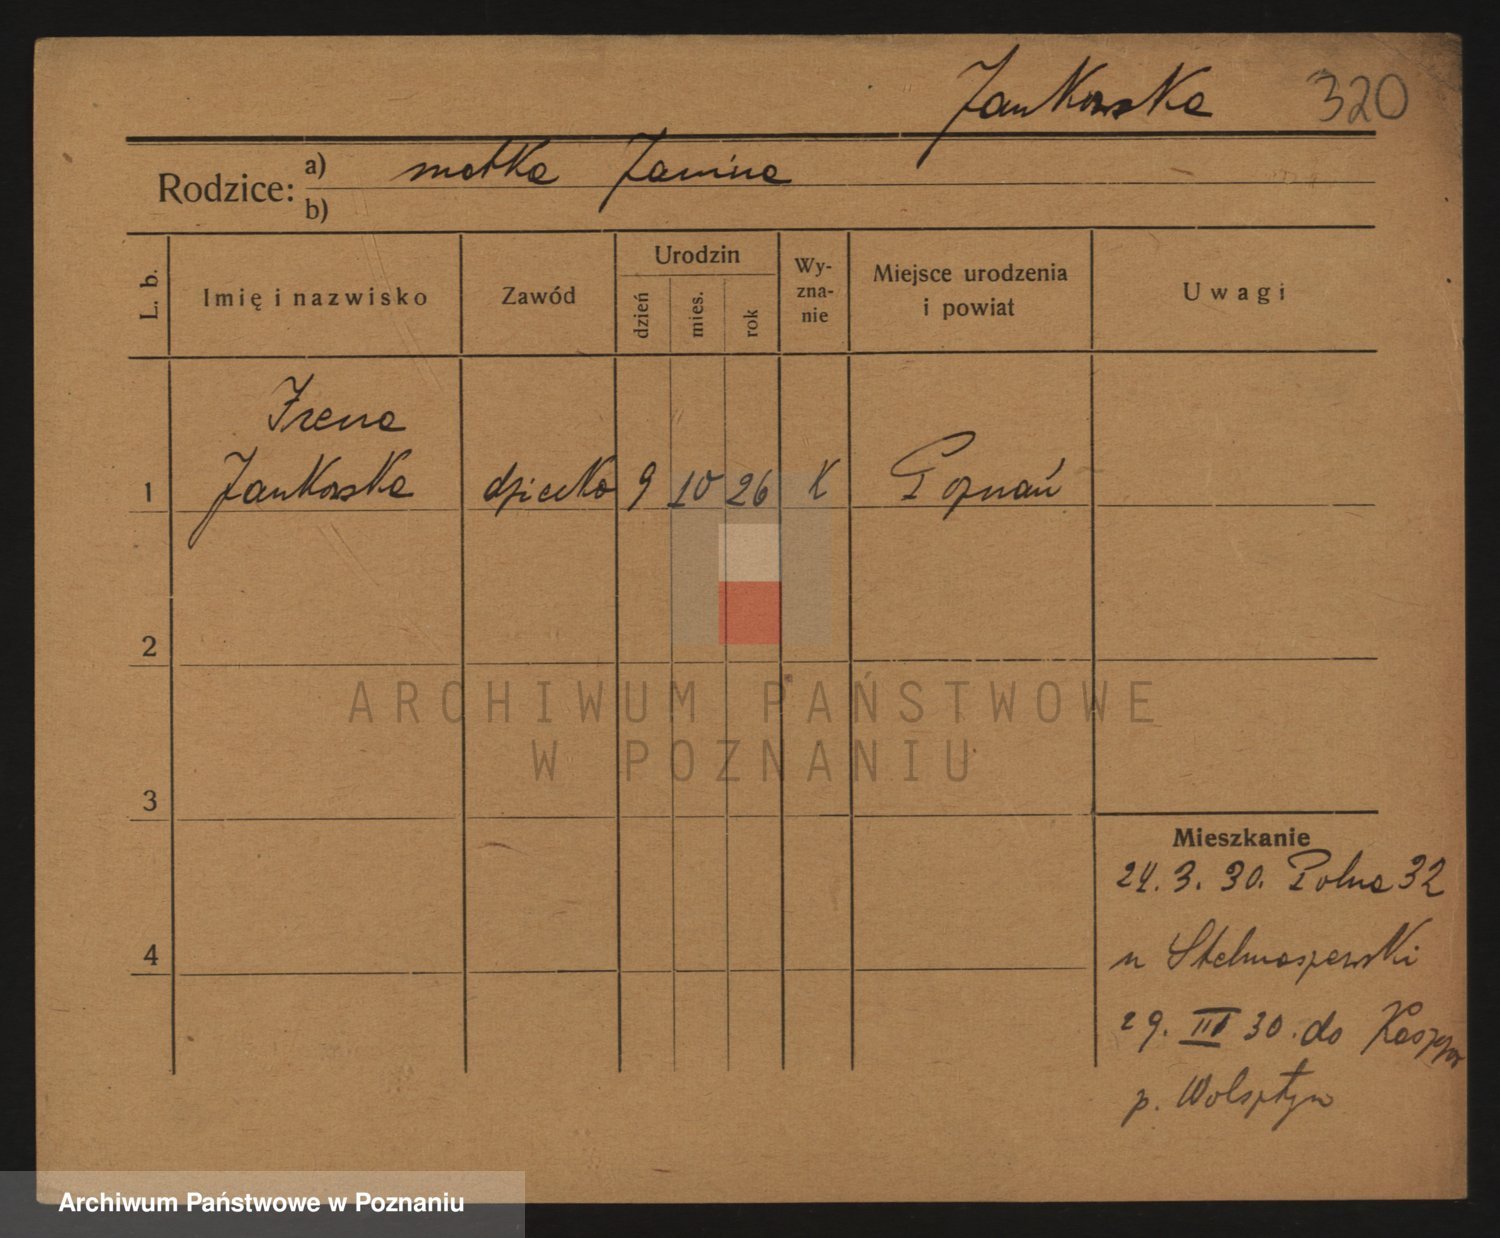 Jankowska 320
Rodzice: a) matka Janina
b)
L. b. Imię i nazwisko Zawód Urodzin dzień mies. rok Wy-zna-nie Miejsce urodzenia i powiat Uwagi
Irena
1 Jankowska dziecko 9 10 26 K Poznań
2
ARCHIWUM PAŃSTWOWE
W POZNANIU
3
Mieszkanie
24. 3. 30. Polna 32
4
u Stelmaszewski
29. III 30. do
p. Wolsztyn
Archiwum Państwowe w Poznaniu